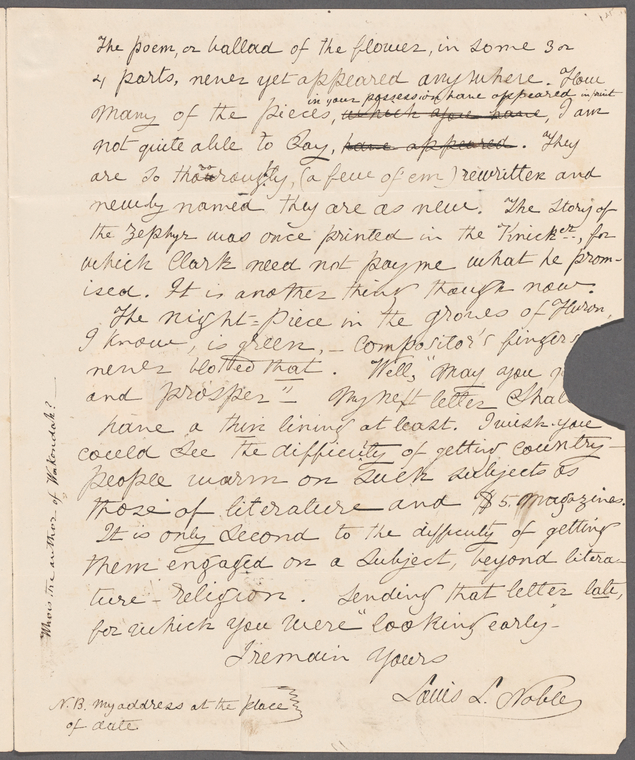 The poem, or ballad of the flower, in some 3 or
4 parts, never yet appeared anywhere. How
in your possession have appeared in print
many of the pieces, which you have, I am
not quite able to say, have appeared. They
are so thoroughly, (a few of em) rewritten and
newly named they are as new. The Story of
the Zephyr was once printed in the Knicker., for
which Clark need not pay me what he prom-
ised. It is another thing though now.
The night-piece in the groves of Huron,
I know, is green, – compositor's fingers
never blotted that. Well, "may you
and prosper" My next letter shall
have a thin lining at least. I wish you
could see the difficulty of getting country-
people warm on such subjects as
those of literature and $5 magazines.
It is only second to the difficulty of getting
them engaged on a subject, beyond litera-
ture – religion. Sending that letter late,
for which you were "looking early"
I remain yours
Louis L. Noble
N.B. My address at the place
of date
Who is the author of Wakondah?